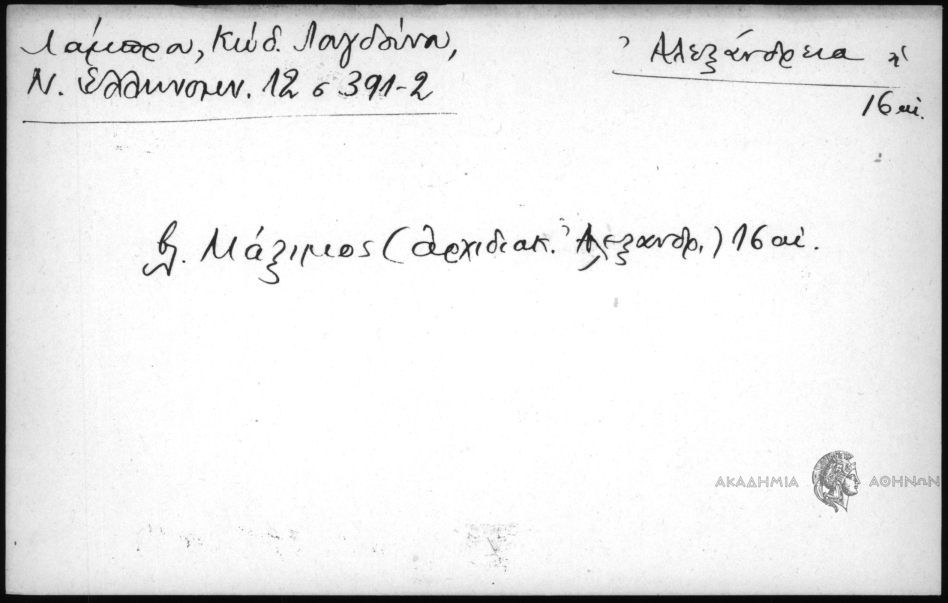 Λάμπρου, Κώδ. Λαγδούνου,
Ν. Ἑλληνομν. 12 σ 391-2
Ἀλεξάνδρεια
16 αἰ.
βλ. Μάξιμος (ἀρχιδιακ. Ἀλεξανδρ.) 16 αἰ.
ΑΚΑΔΗΜΙΑ ΑΘΗΝΩΝ